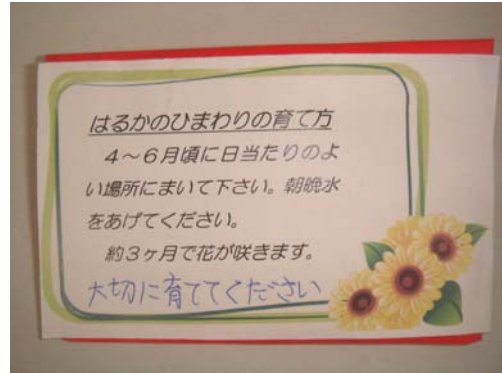 はるかのひまわりの育て方
４～６月頃に日当たりのよ
い場所にまいて下さい。朝晩水
をあげてください。
約３ヶ月で花が咲きます。
大切に育ててください